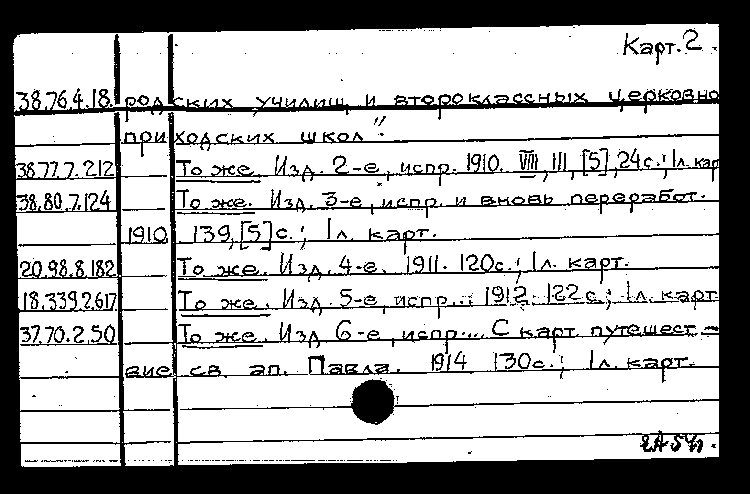 Карт. 2.
38.76.4.18 родских училищ и второклассных церковно
приходских школ".
38.77.7.212 То же. Изд. 2-е, испр. 1910. VIII, III, [5], 24 с.; 1 л. кар
38.80.7.124 То же. Изд. 3-е, испр. и вновь переработ.
1910. 139, [5] с.; 1 л. карт.
20.98.8.182 То же. Изд. 4-е. 1911. 120 с.; 1 л. карт.
18.339.2.617 То же. Изд. 5-е, испр... 1912. 122 с.; 1 л. карт
37.70.2.50 То же. Изд 6-е, испр... С карт. путешест-
вие св. ап. Павла. 1914 130 с.; 1 л. карт.